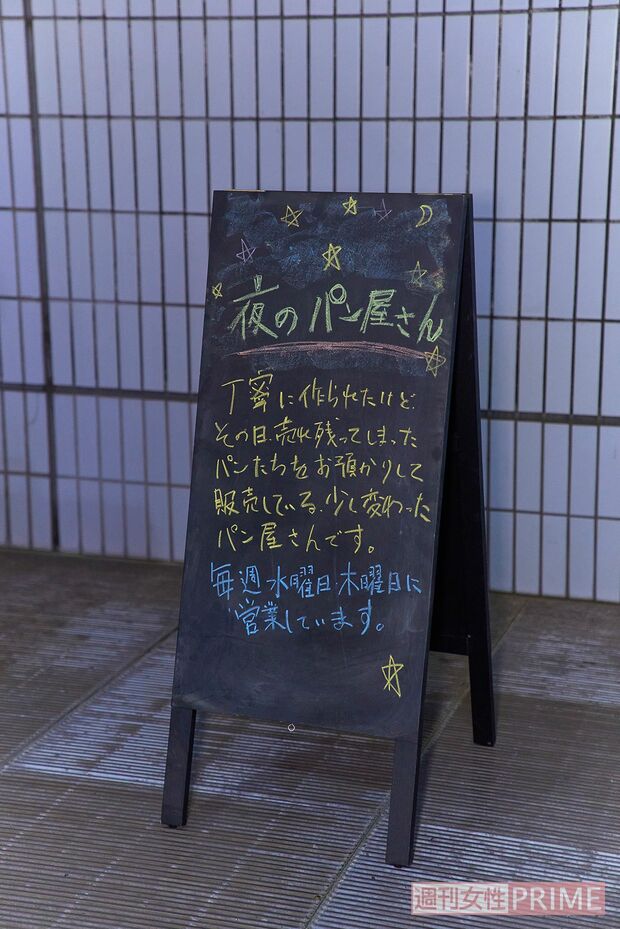 夜のパン屋さん
丁寧に作られたけど、
その日、売れ残ってしまった
パンたちをお預かりして
販売している、少し変わった
パン屋さんです。
毎週 水曜日・木曜日に
営業しています。
週刊女性PRIME